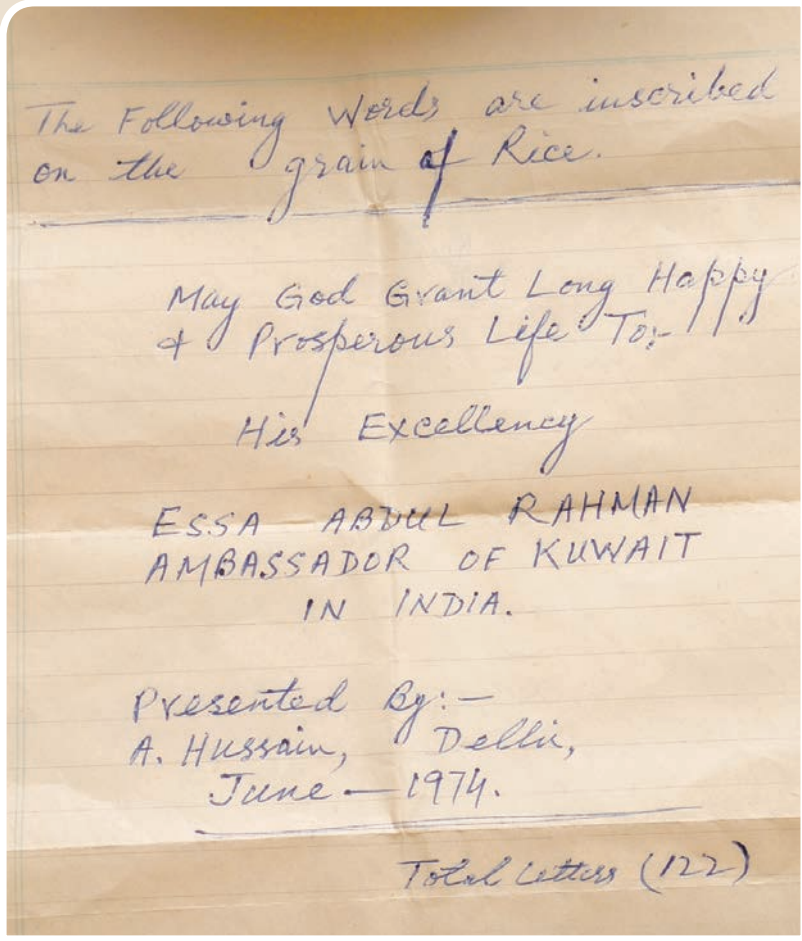 The Following Words are inscribed
on the grain of Rice.
May God Grant Long Happy
& Prosperous Life To:-
His Excellency
ESSA ABDUL RAHMAN
AMBASSADOR OF KUWAIT
IN INDIA.
Presented By:-
A. Hussain, Delhi,
June - 1974.
Total Letters (122)